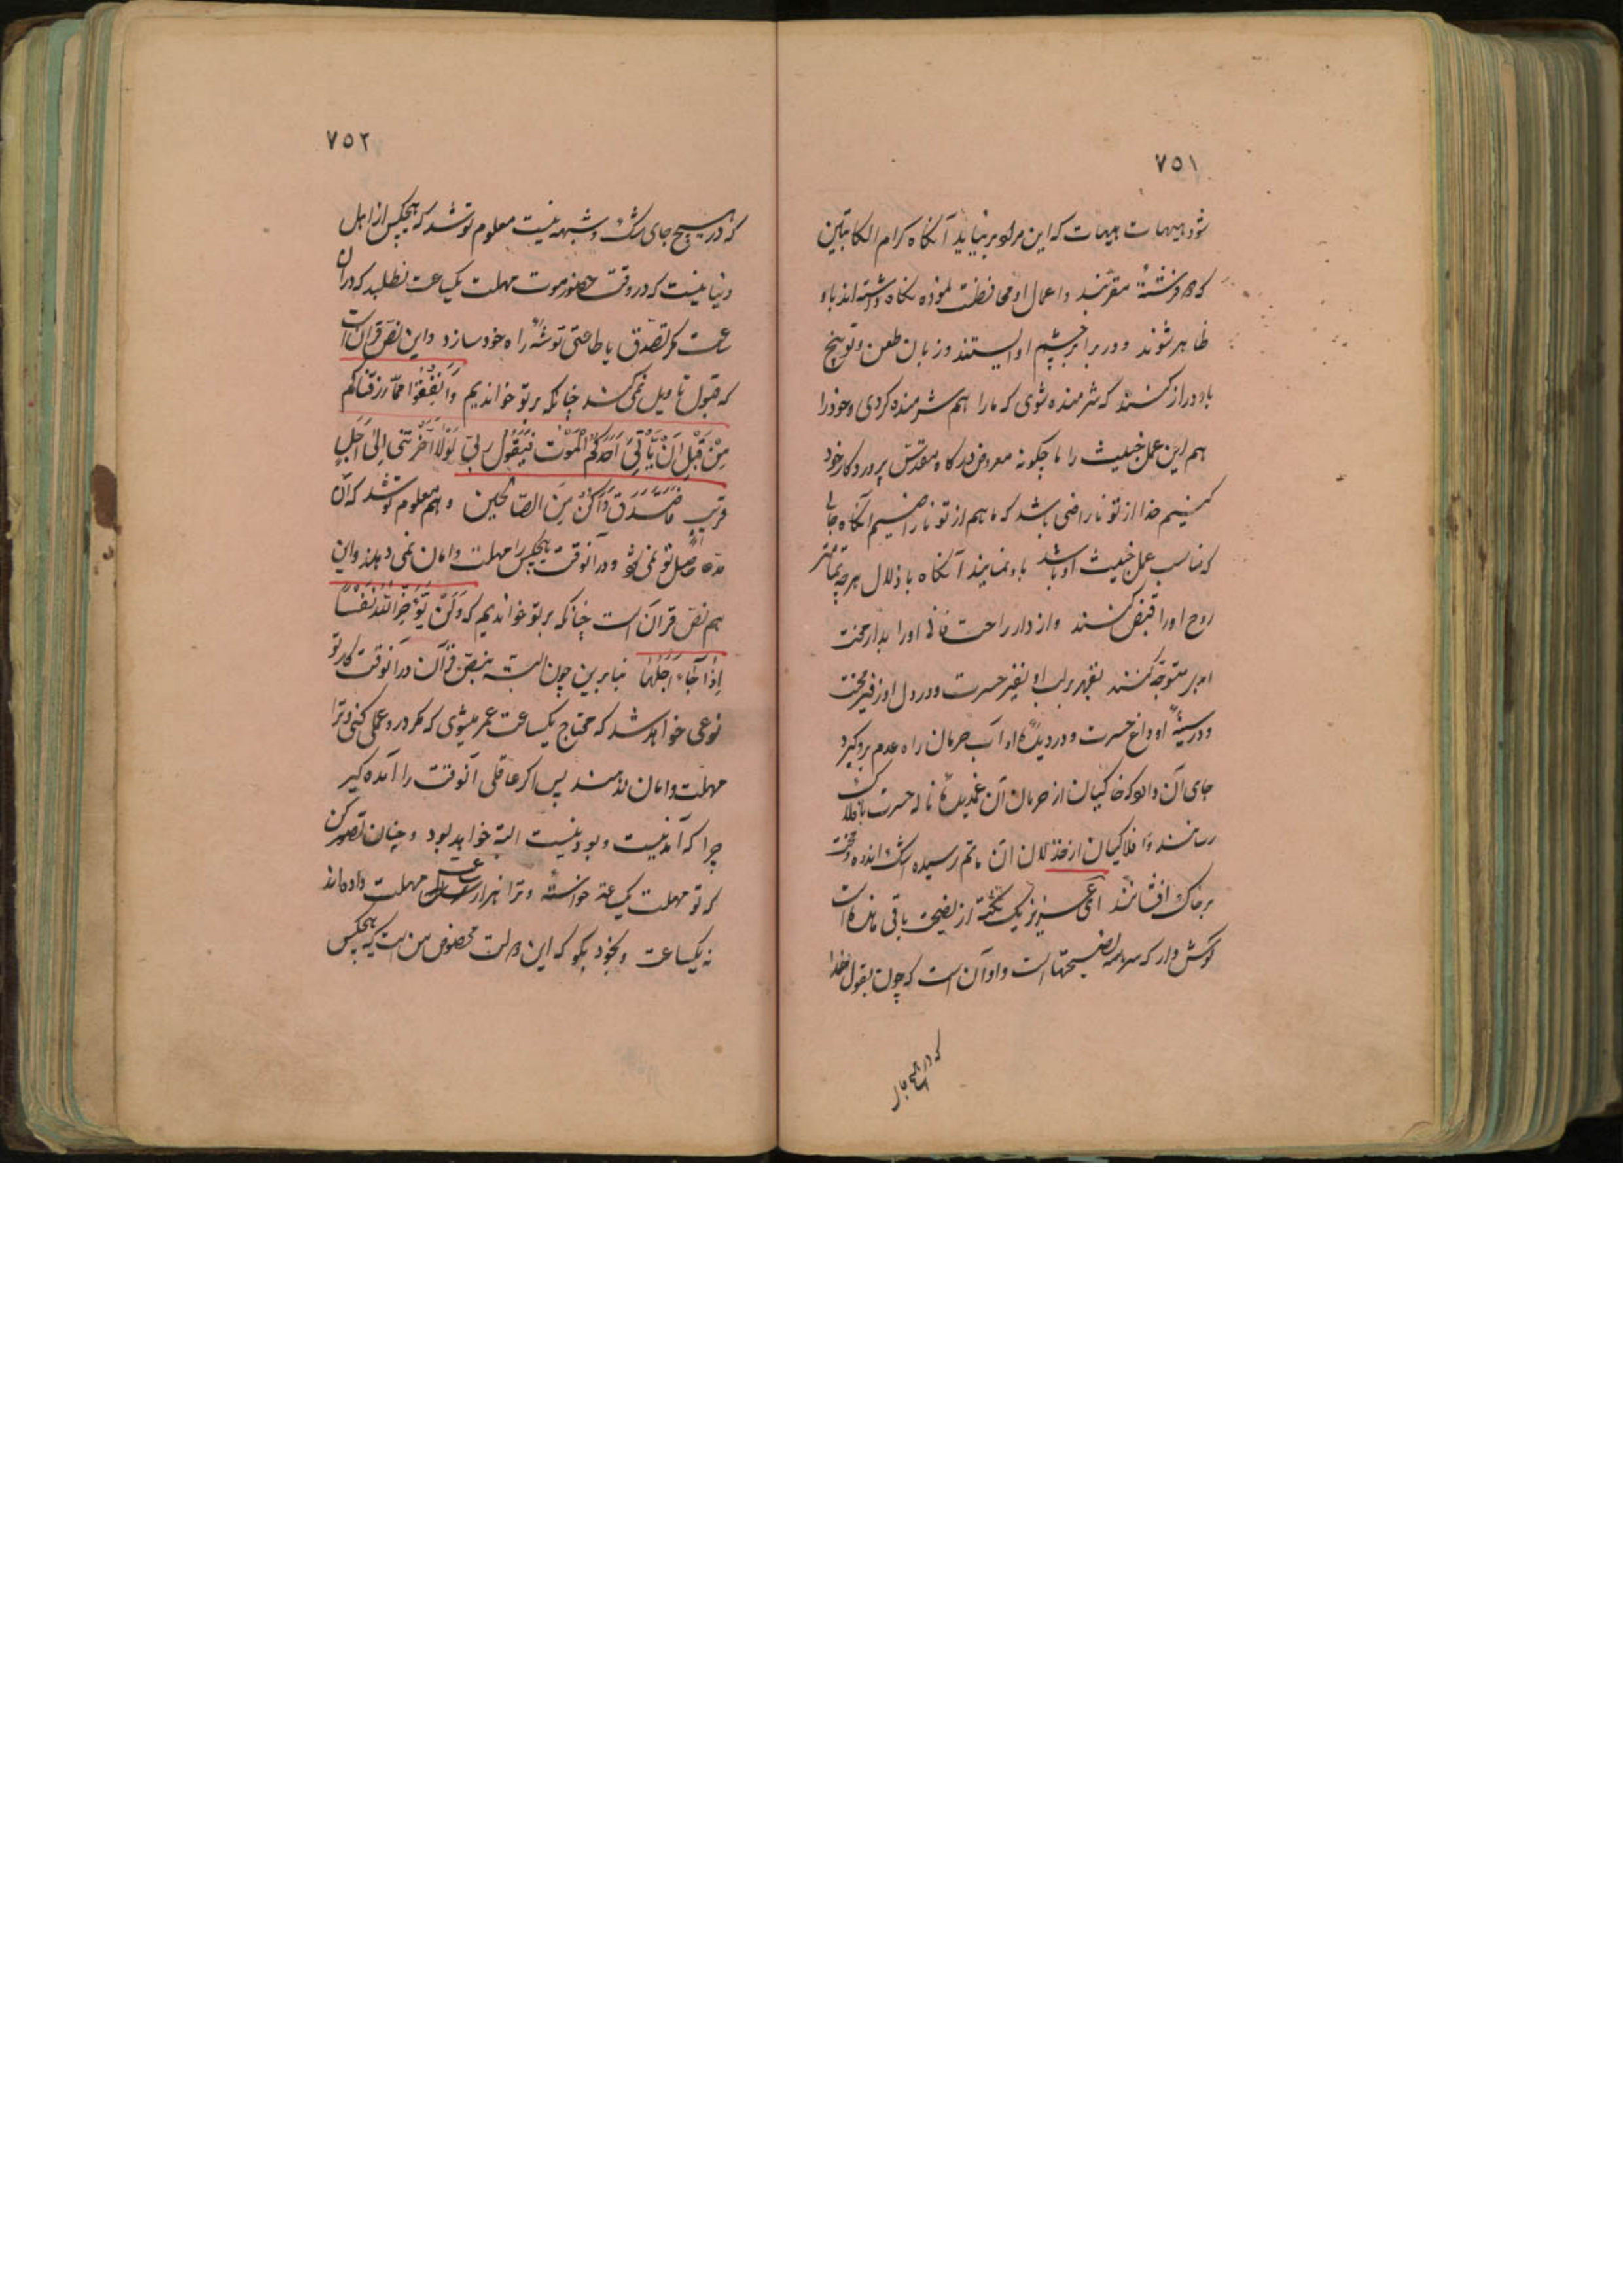 ٧٥١
شود هیهات هیهات که این مراد بر نیاید آنکاه کرام الکاتبین
که دو فرشتهٔ مقرّبند و اعمال او محافظت نموده نکاه داشته‌اند باو
ظاهر شوند و در برابر چشم او ایستند و زبان طعن و توبیخ
باو دراز کنند که شرمنده شوی که ما را هم شرمنده کردی و خود را
هم این عمل خبیث را ما چکونه معروض درکاه مقدّس پروردکار خود
کنیم خدا از تو ناراضی باشد که ما هم از تو ناراضییم آنکاه جای
که مناسب عمل خبیث او باشد باو نمایند آنکاه باذلال هر چه تمامتر
روح او را قبض کنند و از دار راحت فانی او را بدار محنت
ابدی متوجّه کنند بقهر بر لب او نفیر حسرت و در دل او زفیر محنت
و در سینهٔ او داغ حسرت و در دیدهٔ او آب حرمان راه عدم برو کیرد
جای آن دارد که خاکیان از حرمان آن غمدیده ناله حسرت بافلاک
رسانند و افلاکیان از خذلان آن ماتم رسیده اشک اندوه و محنت
بر خاک افشانند ای عزیز یک نکته از نصیحت باقی مانده است
کوش دار که سر همه نصیحتهاست و او آن است که چون بقول خدا
که در هیچ جای
٧٥٢
که در هیچ جای شک و شبهه نیست معلوم تو شد که هیچکس از اهل
دنیا نیست که در وقت حضور موت مهلت یکساعت نطلبد که در آن
ساعت مکر تصدّق یا طاعتی توشهٔ راه خود سازد و این نصّ قرآن است
که قبول تاویل نمی کند چنانکه بر تو خواندیم وَاَنْفِقُوا مِمّا رَزَقْناکُم
مِنْ قَبْلِ اَنْ یَأْتِیَ اَحَدَکُمُ الْمَوْتُ فَیَقُولَ رَبِّ لَوْلا اَخَّرْتَنی اِلیٰ اَجَلٍ
قَریبٍ فَاَصَّدَّقَ وَاَکُنْ مِنَ الصّالحین و هم معلوم تو شد که آن
مدّعا حاصل تو نمی شود و در آنوقت هیچکس را مهلت و امان نمی دهند و این
هم نصّ قرآن است چنانکه بر تو خواندیم که وَلَنْ یُؤَخِّرَ اللهُ نَفْساً
اِذا جآءَ اَجَلُها بنابرین چون البته بنصّ قرآن در آنوقت کار تو
نوعی خواهد شد که محتاج یکساعت عمر میشوی که مکر در و عملی کنی و ترا
مهلت و امان ندهند پس اکر عاقلی آنوقت را آمده کیر
چرا که آمدنیست و بودنیست البته خواهد بود و چنان تصوّر کن
که تو مهلت یکساعته خواسته و ترا هزار ساعت مهلت داده‌اند
نه یکساعت و بخود بکو که این دولت مخصوص من است که هیچکس